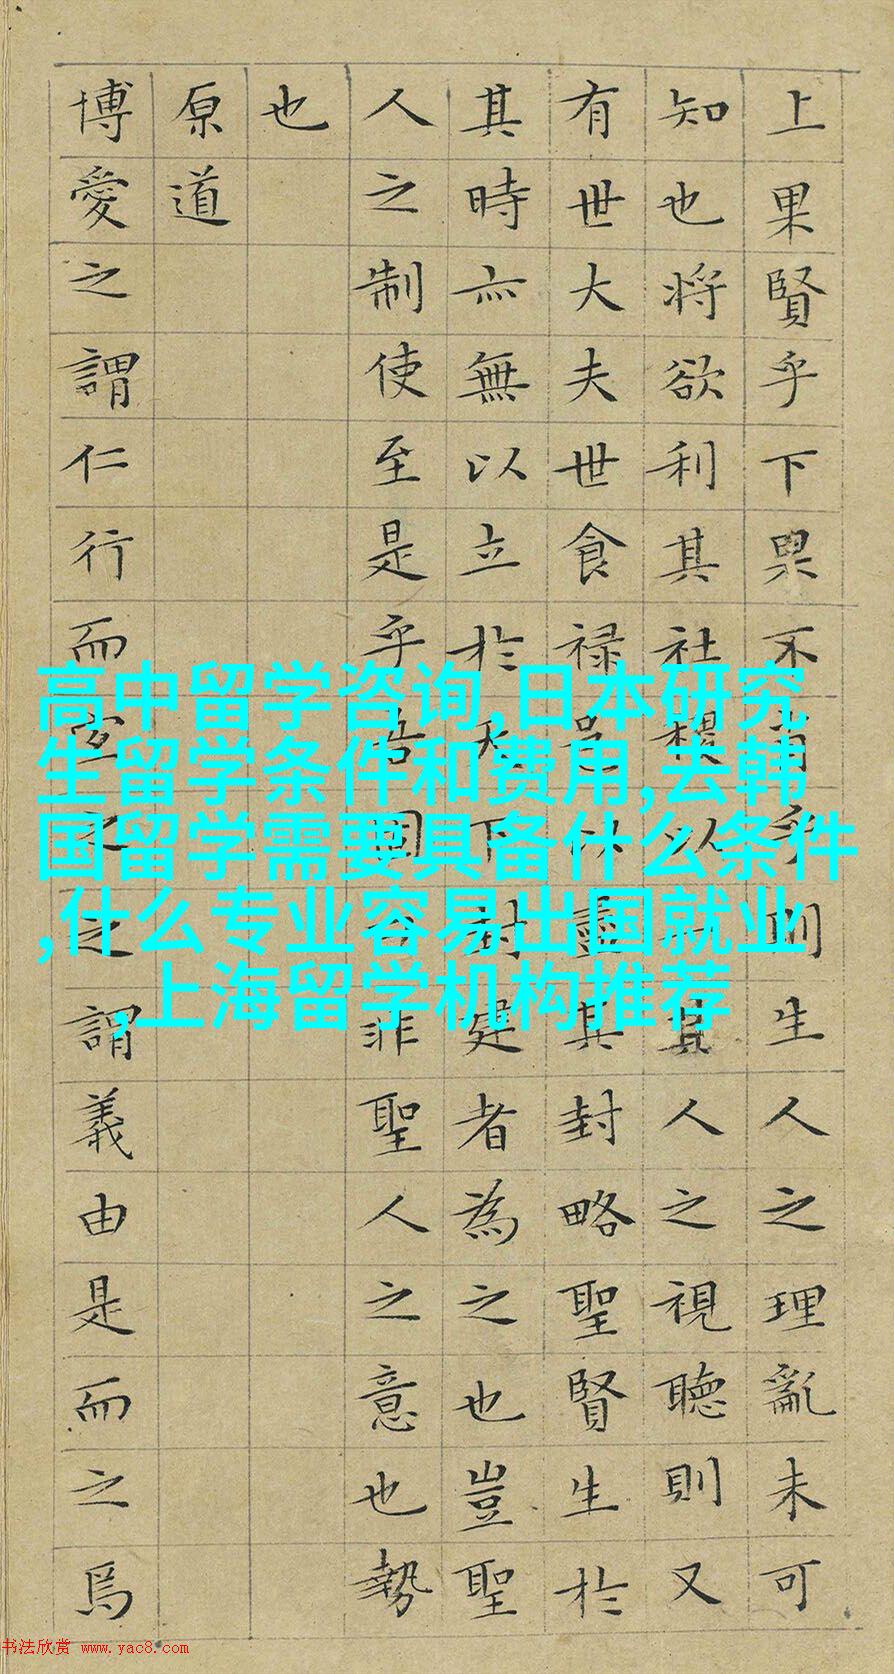 上果賢乎下果不肖乎則生人之理亂未可
知也將欲利其社稷以一其人之視聽則又
有世大夫世食禄邑以盡其封略聖賢生於
其時亦無以立於天下封建者為之也豈聖
人之制使至是乎吾固非聖人之意也勢
也
原道
博愛之謂仁行而宜之之謂義由是而之焉
高中留学咨询,日本研究
生留学条件和费用,去韩
国留学需要具备什么条件
,什么专业容易出国就业
,上海留学机构推荐
书法欣赏 www.yac8.com